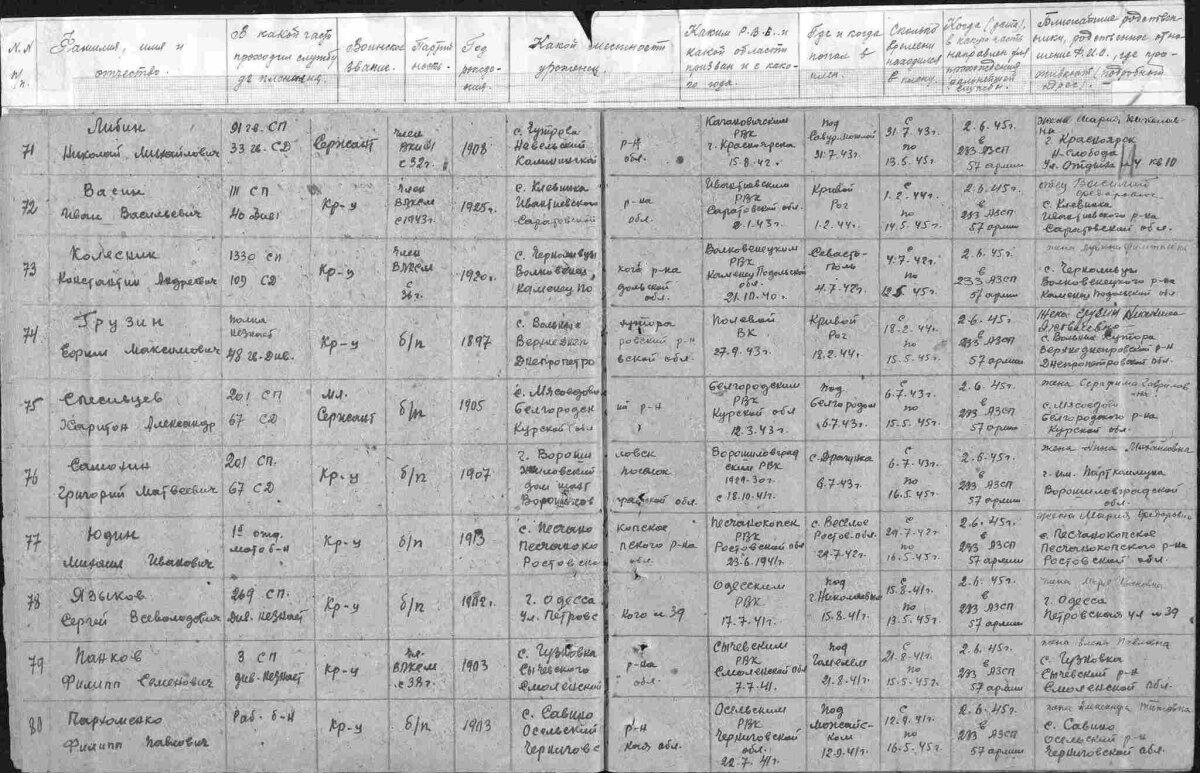 N.N п/п.
Фамилия, имя и отчество.
В какой части проходил службу до пленения,
Воинское звание.
Партийность.
Год рождения.
Какой местности уроженец.
Каким Р.В.К. и какой области призван и с какого года
Где и когда попал в плен
Сколько времени находился в плену.
Когда (дата), в какую часть направлен для прохождения дальнейшей службы.
Ближайшие родственники, родственное отношение Ф.И.О., где проживает (подробный адрес).
71
Либин
Николай Михайлович
91 гв. СП
33 гв. СД
Сержант
член
ВКП(б)
с 32 г.
1908
с. Гутрова
Невельский р-н
Калининской обл.
Кагановичским
РВК
г. Красноярска
15.8.42 г.
под
Савур-могилой
31.7.43 г.
с
31.7.43 г.
по
13.5.45 г.
2.6.45 г.
в
233 АЗСП
57 армии
жена Мария
г. Красноярск
Н-Слобода
Ул. Отдыха 4 кв 10
72
Васин
Иван Васильевич
111 СП
40 див.
Кр-ц
Член
ВЛКСМ
с 1943 г.
1925 г.
с. Клевинка
Ивантиевского р-на
Саратовской обл.
Ивантиевским
РВК
Саратовской обл.
2.1.43 г.
Кривой
Рог
1.2.44 г.
с
1.2.44 г.
по
14.5.45 г.
2.6.45 г.
в
233 АЗСП
57 армии
отец Василий
с. Клевинка
Ивантиевского р-на
Саратовской обл.
73
Колесник
Константин Андреевич
1330 СП
109 СД
Кр-ц
Член
ВЛКСМ
с
36 г.
1920 г.
с. Черноливцы
Волковенецкого р-на
Каменец Подольской обл.
Волковенецким
РВК
Каменец Подольской
обл.
21.10.40 г.
Севастополь
4.7.42 г.
с
4.7.42 г.
по
12.5.45 г.
2.6.45 г.
в
233 АЗСП
57 армии
жена
с. Черноливцы
Волковенецкого р-на
Каменец Подольской обл.
74
Грузин
Ефрим Максимович
полка
незнает
48 гв. див.
Кр-ц
б/п
1897
с. Вольные хутора
Верхнеднепровский р-н
Днепропетровской обл.
Полевой
ВК
27.9.43 г.
Кривой
Рог
18.2.44 г.
с
18.2.44 г.
по
15.5.45 г.
2.6.45 г.
в
233 АЗСП
57 армии
жена
с. Вольные Хутора
Верхнеднепровский р-н
Днепропетровской обл.
75
Спесивцев
Харитон Александр
201 СП
67 СД
мл.
Сержант
б/п
1905
с. Мясоедово
Белгородский р-н
Курской обл
Белгородским
РВК
Курской обл
12.3.43 г.
под
Белгородом
6.7.43 г.
с
6.7.43 г.
по
15.5.45 г.
2.6.45 г.
в
233 АЗСП
57 армии
жена Серафима Гавриловна
с. Мясоедово
Белгородского р-на
Курской обл.
76
Самохин
Григорий Матвеевич
201 СП.
67 СД
Кр-ц
б/п
1907
г. Ворошиловск
поселок
Ворошиловградской обл.
Ворошиловградским РВК
1929-30 г.
с 18.10.41 г.
6.7.43 г.
с
6.7.43 г.
по
16.5.45 г.
2.6.45 г.
в
233 АЗСП
57 армии
жена Анна Михайловна
г. им. Парткоммуна
Ворошиловградской
обл.
77
Юдин
Михаил Иванович
1й отд.
мото б-н
Кр-ц
б/п
1913
с. Песчанокопское
Песчанокопского р-на
Ростовской обл.
Песчанокопск
РВК
Ростовской обл
23.6.1941 г.
с. Веселое
Ростов. обл.
29.7.42 г.
с
29.7.42 г.
по
16.5.45 г.
2.6.45 г.
в
233 АЗСП
57 армии
жена Мария Федоровна
с. Песчанокопское
Песчанокопского р-на
Ростовской обл.
78
Языков
Сергей Всеволодович
269 СП.
див. незнает
Кр-ц
б/п
1902 г.
г. Одесса
Ул. Петровского № 39
Одесским
РВК
17.7.41 г.
под
г. Николаевко
15.8.41 г.
с
15.8.41 г.
по
13.5.45 г.
2.6.45 г.
в
233 АЗСП
57 армии
жена
г. Одесса
Петровская ул № 39
79
Панков
Филипп Семенович
3 СП
див. незнает
Кр-ц
чл.
ВЛКСМ
с 38 г.
1903
с. Гузновка
Сычевского р-на
Смоленской обл.
Сычевским
РВК
Смоленской обл
7.7.41.
под
Гомелем
21.8.41 г.
с
21.8.41 г.
по
15.5.45 г.
2.6.45 г.
в
233 АЗСП
57 армии
жена Елена Павловна
с. Гузновка
Сычевский р-н
Смоленской обл.
80
Пархоменко
Филипп Павлович
Раб. б-н
Кр-ц
б/п
1903
с. Савино
Осельский р-н
Черниговской обл.
Осельским
РВК
Черниговской
обл.
22.7.41 г.
под
Можайском
12.9.41 г.
с
12.9.41 г.
по
16.5.45 г.
2.6.45 г.
в
233 АЗСП
57 армии
жена Александра
с. Савино
Осельский р-н
Черниговской обл.